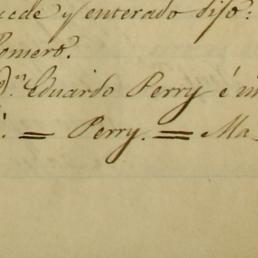 cede y enterado dijo:
Romero.
D.n Eduardo Perry é
= Perry. = Ma